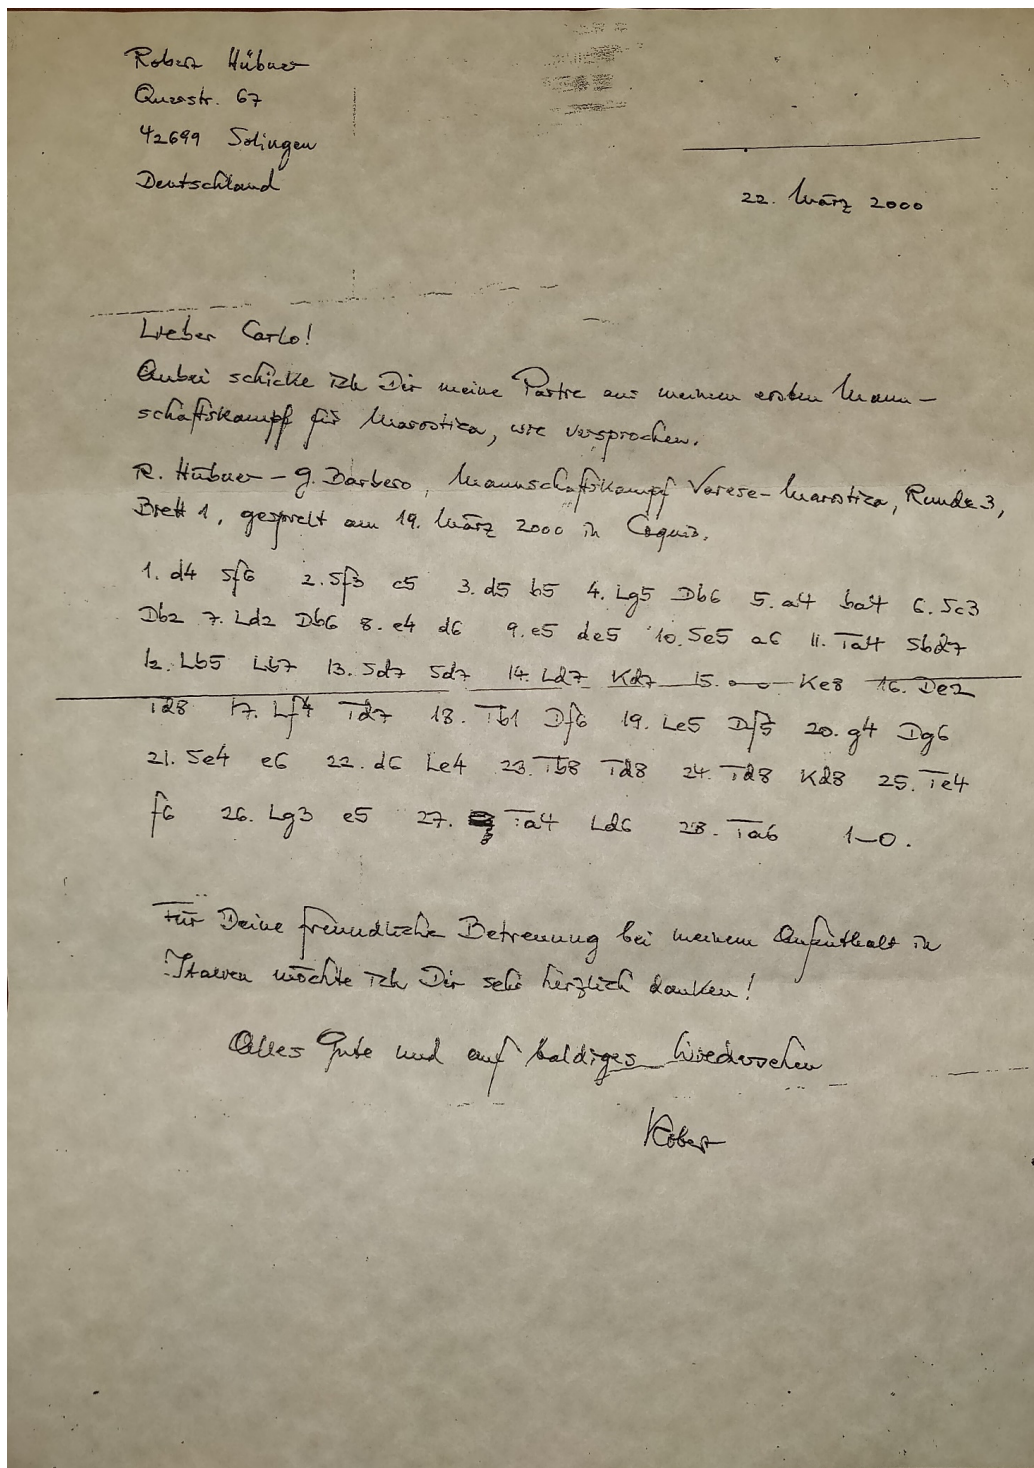 Robert Hübner
Querstr. 67
42699 Solingen
Deutschland
22. März 2000
Lieber Carlo!
Anbei schicke ich Dir meine Partie aus meinem ersten Mann-
schaftskampf für Marostica, wie versprochen.
R. Hübner – G. Barbero, Mannschaftskampf Varese-Marostica, Runde 3,
Brett 1, gespielt am 19. März 2000 in
1. d4 Sf6 2. Sf3 c5 3. d5 b5 4. Lg5 Db6 5. a4 ba4 6. Sc3
Db2 7. Ld2 Db6 8. e4 d6 9. e5 de5 10. Se5 a6 11. Ta4 Sbd7
12. Lb5 Lb7 13. Sd7 Sd7 14. Ld7 Kd7 15. o-o Ke8 16. De2
Td8 17. Lf4 Td7 18. Tb1 Df6 19. Le5 Df5 20. g4 Dg6
21. Se4 e6 22. d6 Le4 23. Tb8 Td8 24. Td8 Kd8 25. Te4
f6 26. Lg3 e5 27. Ta4 Ld6 28. Ta6 1–0.
Für Deine freundliche Betreuung bei meinem Aufenthalt in
Italien möchte ich Dir sehr herzlich danken!
Alles Gute und auf baldiges Wiedersehen
Robert